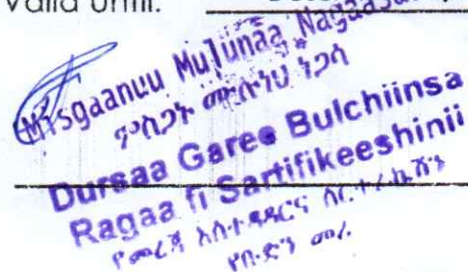 Valid Until:
Misgaanuu Mulunaa Nagaasa
ምስጋኑ ሙሉነህ ነጋሳ
Dursaa Garee Bulchiinsa
Ragaa fi Sartifikeeshinii
የመረጃ አስተዳደርና ሰርተፊኬሽን
የቡድን መሪ